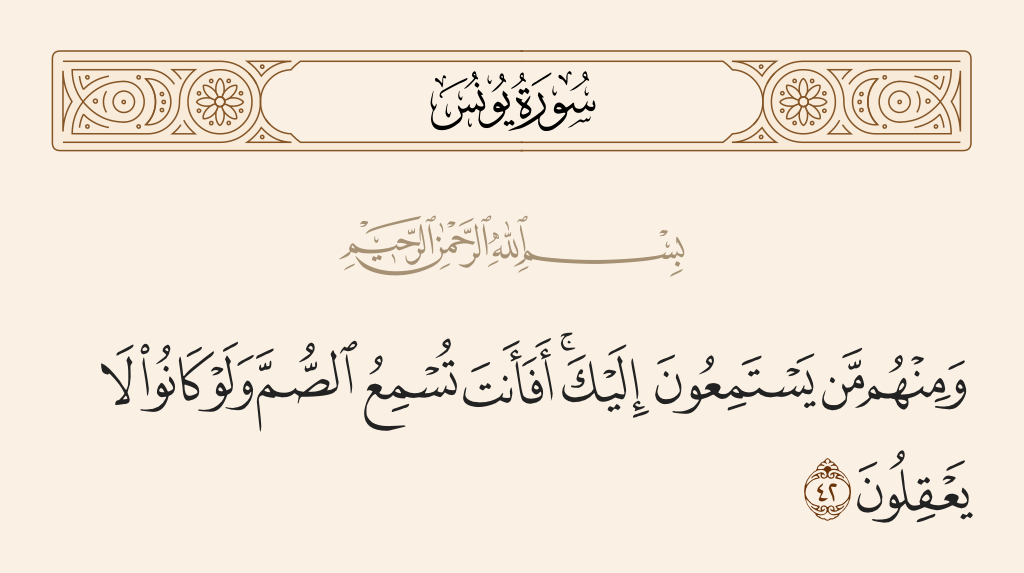 سُورَةُ يُونُسَ
بِسْمِ ٱللَّهِ ٱلرَّحْمَٰنِ ٱلرَّحِيمِ
وَمِنْهُم مَّن يَسْتَمِعُونَ إِلَيْكَ ۚ أَفَأَنتَ تُسْمِعُ ٱلصُّمَّ وَلَوْ كَانُوا۟ لَا
يَعْقِلُونَ ٤٢